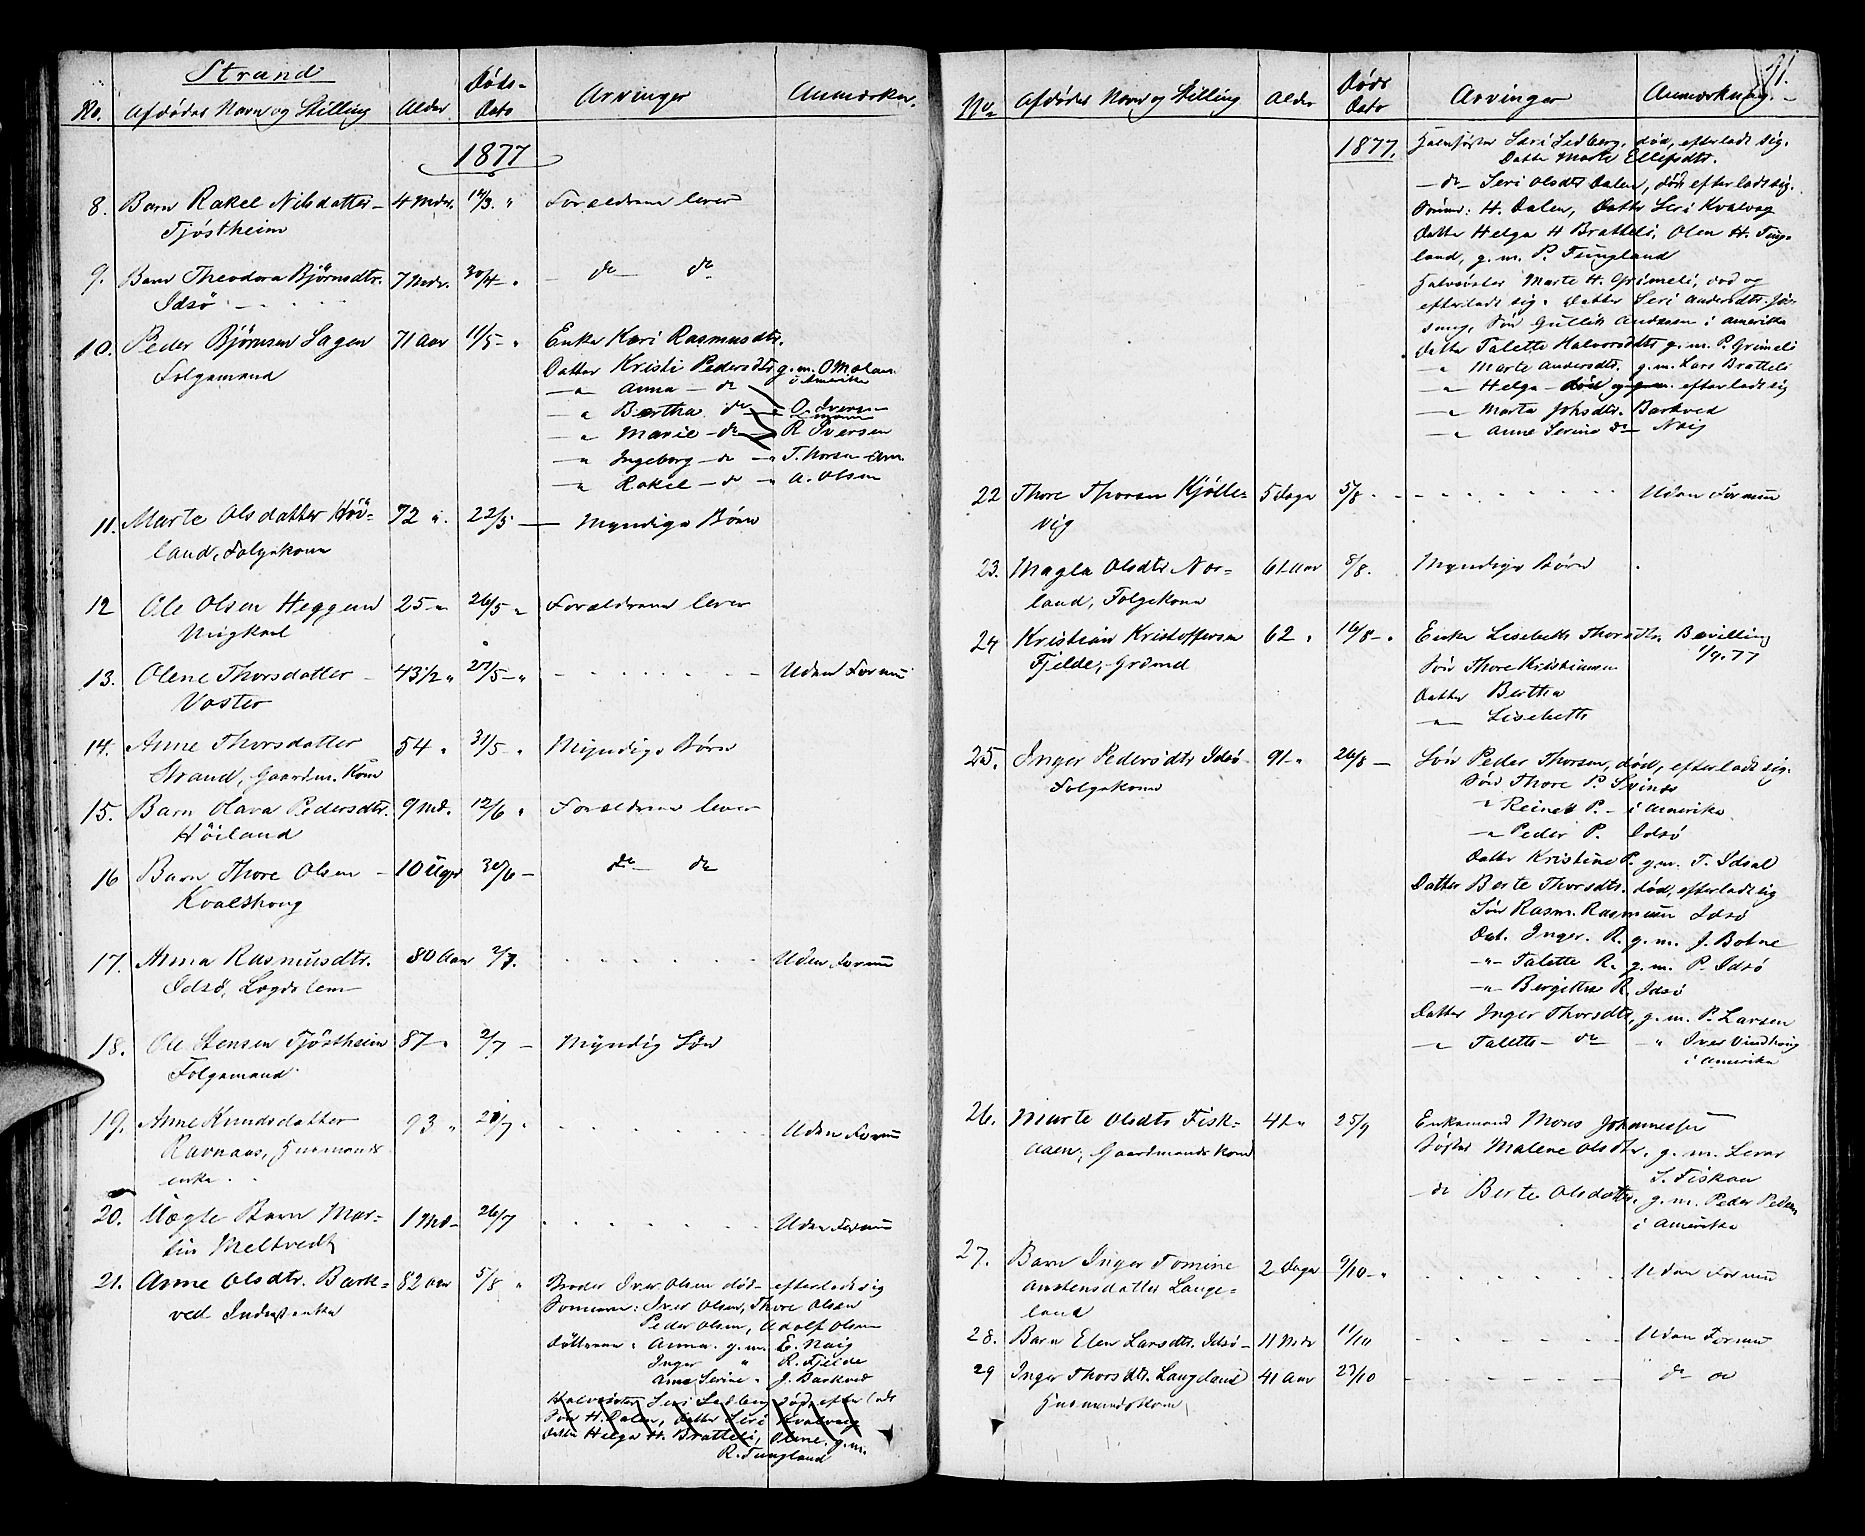 Strand
No. Afdødes Navn og Stilling Alder Døds-Dato Arvinger Anmærkn.
1877
8. Barn Rakel Nilsdatter 4 Mdr. 14/3 " Forældrene lever
Tjøstheim
9. Barn Theodora Bjørnsdtr. 7 Mdr. 30/4 - " - do - do
Idsø
10. Peder Bjørnsen Lagen 71 Aar 11/5 - " Enke Kari Rasmusdtr.
Folgemand
Datter Kristi Pedersdtr. g.m. O Molan
i Amerika
- " Anna - do
- " Bertha do - " O. Iversen
- " Marie - do - R Iversen
- " Ingeborg - do - " T. Thorsen Am.
- " Rakel - do " A. Olsen
11. Marte Olsdatter Høi- 72 " 22/5 - Myndige Børn
land, Folgekone
12 Ole Olsen Heggem 25 - " 26/5 " Forældrene lever
Ungkarl
13. Olene Thorsdatter 43 1/2 " 27/5 - " Uden Formue
Voster
14. Anne Thorsdatter 54 " 31/5 " Myndige Børn
Strand, Gaardm. Kone
15. Barn Olava Pedersdtr. 9 Md. 12/6 " Forældrene lever
Høiland
16 Barn Thore Olsen 10 Uger 30/6 - do - do
Kvalshoug
17. Anna Rasmusdtr. 80 Aar 2/7. Uden Formue
Idsø, Lægdslem
18. Ole Stensen Tjøstheim 87 - " 2/7 - Myndig Søn
Folgemand
19. Anne Knudsdatter 93 " 21/7 " Uden Formue
Ravnaas, Husmands
enke
20. Uægte Barn Mar- 1 Md - 26/7 Uden Formue
tin Meltvedt
21. Anne Olsdtr. Bark- 82 Aar 5/8 " Broder Iver Olsen død - efterladt sig
ved Inderstenke
Sønnerne: Iver Olsen, Thore Olsen
Peder Olsen, Adolf Olsen
Døttrene: Anna g.m. E. Naig
Inger " R. Fjelde
Ane Serine " J. Barkved
Halvsøster Seri Sedberg død, efterladt
Søn H. Dalen, datter Seri Kvalvaag
datter Helga H. Bratteli, Olene g.m.
R. Tungland
71.
No. Afdødes Navn og Stilling Alder Døds Dato Arvinger Anmærkning.
1877. Halvsøster Seri Sedberg, død, efterladt sig.
Datter Marte Ellefsdtr.
- do - Seri Olsdtr Dalen, død efterladt sig.
Sønner: H. Dalen, Datter Seri Kvalvaag
Datter Helga H Bratteli, Olen H. Tung-
land, g.m. P. Tungland
Halvsøster Marte H. Grimeli, død og
efterladt sig. Datter Seri Andersdtr. Jøs-
sang, Søn Gullik Andersen i Amerika
datter Talette Halvorsdtr g.m. P. Grimeli
- " Marte Andersdtr. g.m. Lars Bratteli
- " Helga - død og g.m. efterladt sig
- " Marta Johsdtr. Barkved
- " Anne Serine do - Naig
22 Thore Thorsen Kjølle- 5 Dage 5/8 Uden Formue
vig
23. Magla Olsdtr Nor- 61 Aar 8/8. Myndige Børn
land, Folgekone
24 Kristian Kristoffersen 62 " 16/8 - " Enke Lisebeth Thorsdtr. Bevilling
Fjelde, Grdmd
1/9.77
Søn Thore Kristiansen
Datter Bertha
- " Lisebeth
25. Inger Pedersdtr Idsø 91 - " 26/8 - Søn Peder Thorsen, død, efterladt sig.
Folgekone
Søn Thore P. Svines
" Reinert P. - i Amerika
- " Peder P. Idsø
Datter Kristine P. g.m. T. Idsal
Datter Berte Thorsdtr. død, efterladt sig
Søn Rasm. Rasmussen Idsø
Dat. Inger R. g.m. J. Botne
- " - Talette R. g.m. P. Idsø
- " Bergithe R. Idsø
Datter Inger Thorsdtr, g.m. P. Larsen
- " Talette - do - " Iver Vindhvig
i Amerika
26. Marte Olsdtr Fisk- 41 " 25/9 Enkemand Mons Johannessen
aaen, Gaardmands Kone
Søster Malene Olsdtr. g.m. Levar
S. Fiskaa
- do Berte Olsdatter g.m. Peder Pedersen
i Amerika
27. Barn Inger Tomine 2 Dage 9/10 - " Uden Formue
Austensdatter Lange-
land
28. Barn Elen Larsdtr. Idsø - 11 Mdr 11/10 Uden Formue
29 Inger Thorsdtr. Langeland 41 Aar 23/10 do do
Husmandskone